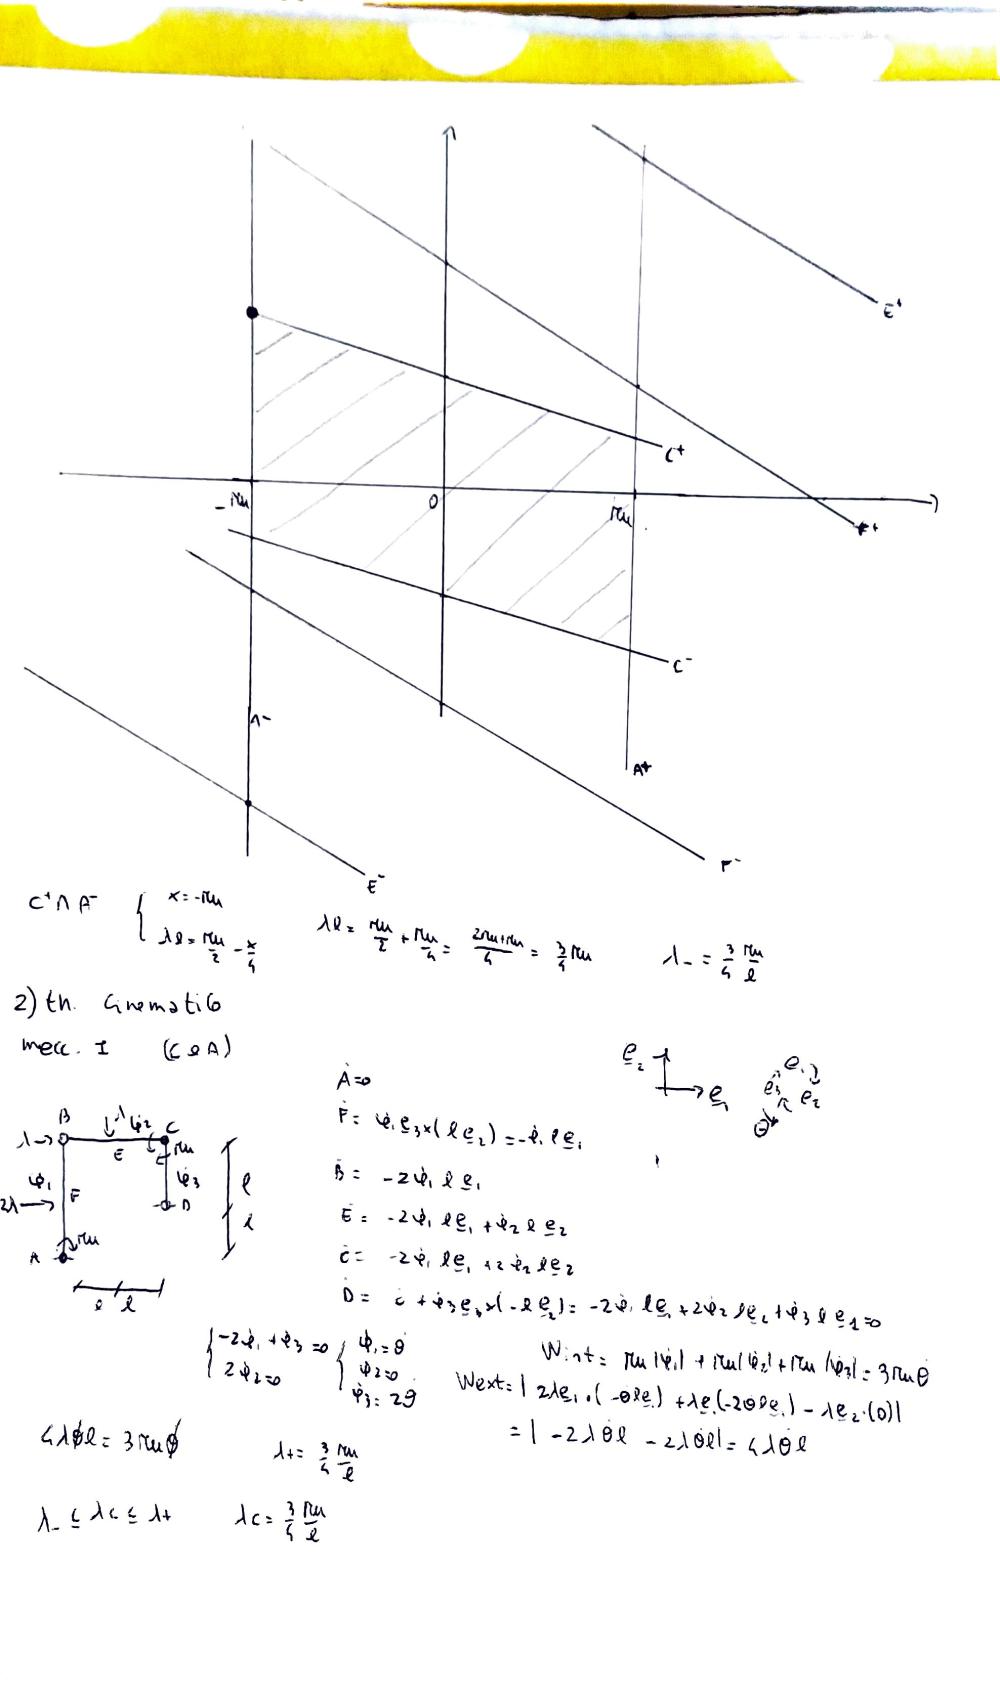 E⁺
C⁺
-Mu
0
Mu
F⁺
C⁻
A⁻
A⁺
F⁻
E⁻
C⁺∩A⁻ { x=-Mu
λl= Mu/2 - x/4
λl= Mu/2 + Mu/4 = 2Mu+Mu/4 = 3/4 Mu
λ₋ = 3/4 Mu/l
2) th. Cinematico
mecc. I (C e A)
e₂
e₁
e₁
e₃
e₂
B
λ→
λ
φ̇₂
C
E
Mu
φ̇₁
F
φ̇₃
D
2λ→
A
Mu
l
l
l l
Ȧ=0
Ḟ= φ̇₁e₃×(le₂)=-φ̇₁le₁
Ḃ= -2φ̇₁le₁
Ė= -2φ̇₁le₁+φ̇₂le₂
Ċ= -2φ̇₁le₁+2φ̇₂le₂
Ḋ= ċ+φ̇₃e₃×(-le₂)= -2φ̇₁le₁+2φ̇₂le₂+φ̇₃le₁=0
{ -2φ̇₁+φ̇₃=0
2φ̇₂=0
{ φ̇₁=θ̇
φ̇₂=0
φ̇₃=2θ̇
Wint= Mu|φ̇₁|+Mu|φ̇₂|+Mu|φ̇₃|=3Muθ̇
Wext=|2λe₁·(-θ̇le₁)+λe₁(-2θ̇le₁)-λe₂·(0)|
=|-2λθ̇l-2λθ̇l|=4λθ̇l
4λθ̇l=3Muθ̇
λ+= 3/4 Mu/l
λ₋≤λc≤λ+
λc= 3/4 Mu/l